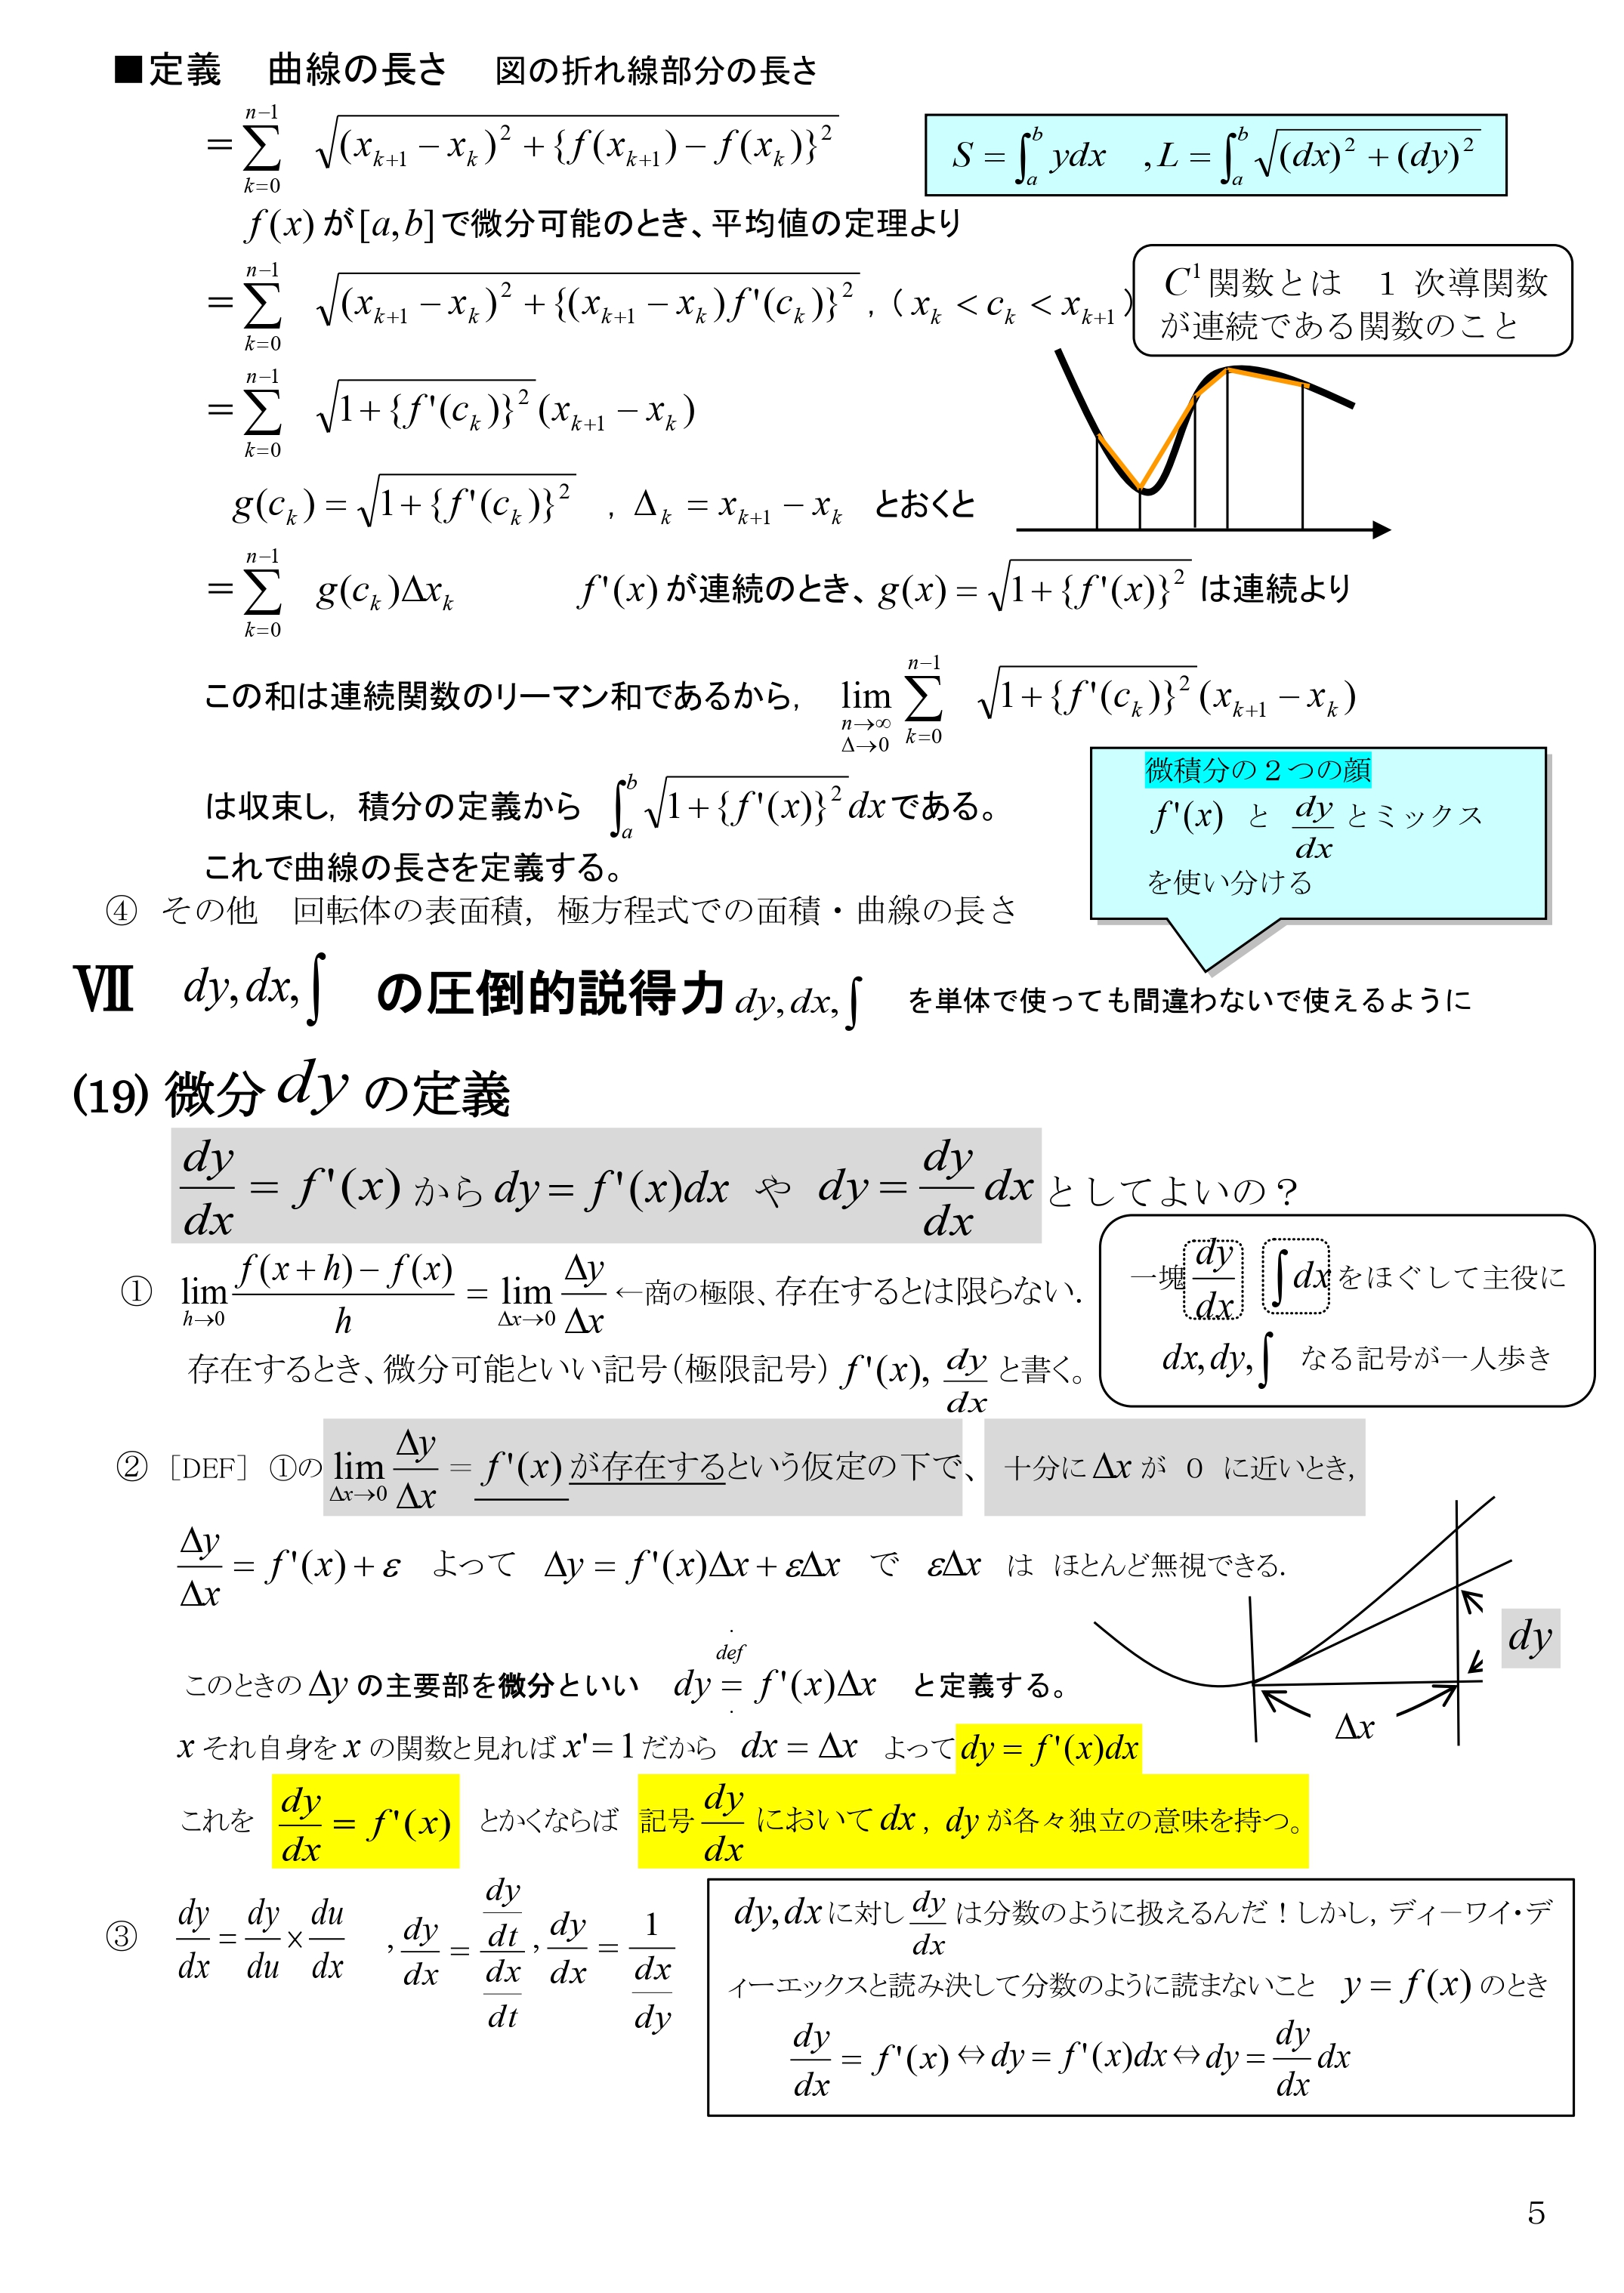 ■定義　曲線の長さ　図の折れ線部分の長さ
= \sum_{k=0}^{n-1} \sqrt{(x_{k+1} - x_k)^2 + \{f(x_{k+1}) - f(x_k)\}^2}
S = \int_a^b ydx　, L = \int_a^b \sqrt{(dx)^2 + (dy)^2}
f(x) が [a,b] で微分可能のとき、平均値の定理より
= \sum_{k=0}^{n-1} \sqrt{(x_{k+1} - x_k)^2 + \{(x_{k+1} - x_k) f'(c_k)\}^2} , ( x_k < c_k < x_{k+1} )
C^1 関数とは　1 次導関数
が連続である関数のこと
= \sum_{k=0}^{n-1} \sqrt{1 + \{f'(c_k)\}^2} (x_{k+1} - x_k)
g(c_k) = \sqrt{1 + \{f'(c_k)\}^2}　, Δ_k = x_{k+1} - x_k　とおくと
= \sum_{k=0}^{n-1} g(c_k)Δx_k　f'(x) が連続のとき、g(x) = \sqrt{1 + \{f'(x)\}^2} は連続より
この和は連続関数のリーマン和であるから,　\lim_{n→∞, Δ→0} \sum_{k=0}^{n-1} \sqrt{1 + \{f'(c_k)\}^2} (x_{k+1} - x_k)
は収束し, 積分の定義から　\int_a^b \sqrt{1 + \{f'(x)\}^2} dx である。
これで曲線の長さを定義する。
微積分の２つの顔
f'(x) と \frac{dy}{dx} とミックス
を使い分ける
④ その他　回転体の表面積, 極方程式での面積・曲線の長さ
Ⅶ　dy, dx, ∫　の圧倒的説得力 dy, dx, ∫　を単体で使っても間違わないで使えるように
(19) 微分 dy の定義
\frac{dy}{dx} = f'(x) から dy = f'(x)dx や dy = \frac{dy}{dx} dx としてよいの？
① \lim_{h→0} \frac{f(x+h) - f(x)}{h} = \lim_{Δx→0} \frac{Δy}{Δx} ←商の極限、存在するとは限らない.
存在するとき、微分可能といい記号(極限記号) f'(x), \frac{dy}{dx} と書く。
一塊 \frac{dy}{dx} ∫dx をほぐして主役に
dx, dy, ∫　なる記号が一人歩き
② [DEF] ①の \lim_{Δx→0} \frac{Δy}{Δx} = f'(x) が存在するという仮定の下で、　十分に Δx が 0 に近いとき,
\frac{Δy}{Δx} = f'(x) + ε　よって　Δy = f'(x)Δx + εΔx　で　εΔx　は　ほとんど無視できる.
このときの Δy の主要部を微分といい　dy \overset{def}{=} f'(x)Δx　と定義する。
dy
Δx
x それ自身を x の関数と見れば x' = 1 だから　dx = Δx　よって dy = f'(x)dx
これを \frac{dy}{dx} = f'(x) とかくならば 記号 \frac{dy}{dx} において dx , dy が各々独立の意味を持つ。
③ \frac{dy}{dx} = \frac{dy}{du} × \frac{du}{dx}　, \frac{dy}{dx} = \frac{\frac{dy}{dt}}{\frac{dx}{dt}} , \frac{dy}{dx} = \frac{1}{\frac{dx}{dy}}
dy, dx に対し \frac{dy}{dx} は分数のように扱えるんだ！しかし, ディーワイ・デ
ィーエックスと読み決して分数のように読まないこと　y = f(x) のとき
\frac{dy}{dx} = f'(x) ⇔ dy = f'(x)dx ⇔ dy = \frac{dy}{dx} dx
5